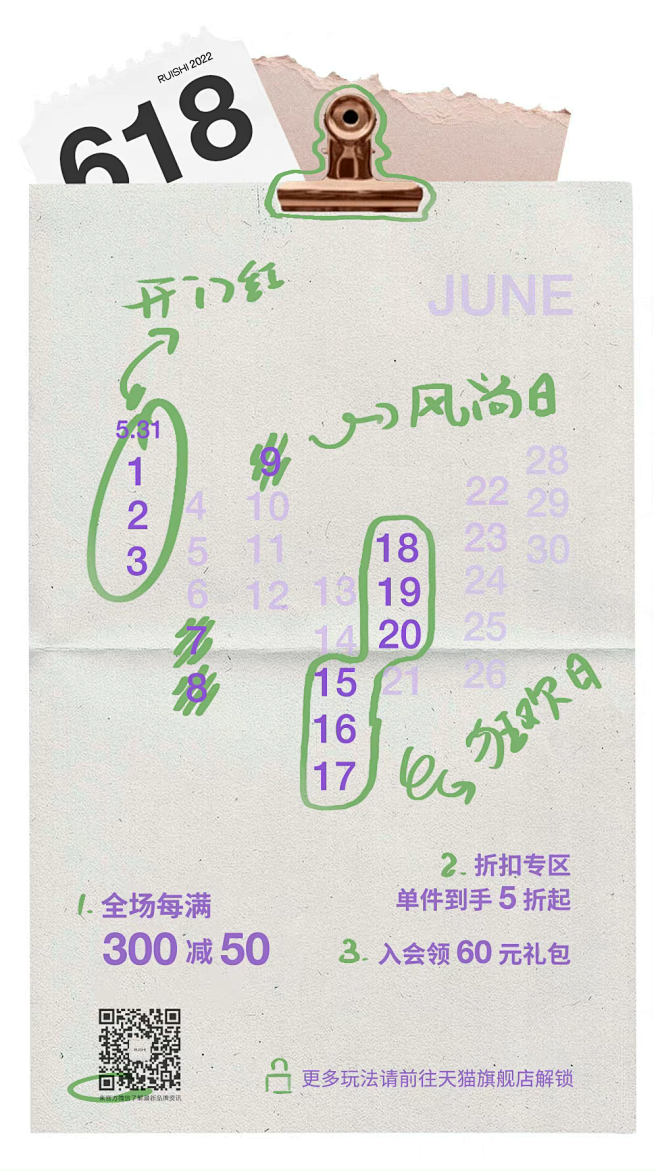 RUISHI 2022
618
开门红
JUNE
风尚日
5.31
1
2
3
4
5
6
7
8
9
10
11
12
13
14
15
16
17
18
19
20
21
22
23
24
25
26
28
29
30
狂欢日
1. 全场每满
300 减 50
2. 折扣专区
单件到手 5 折起
3. 入会领 60 元礼包
更多玩法请前往天猫旗舰店解锁